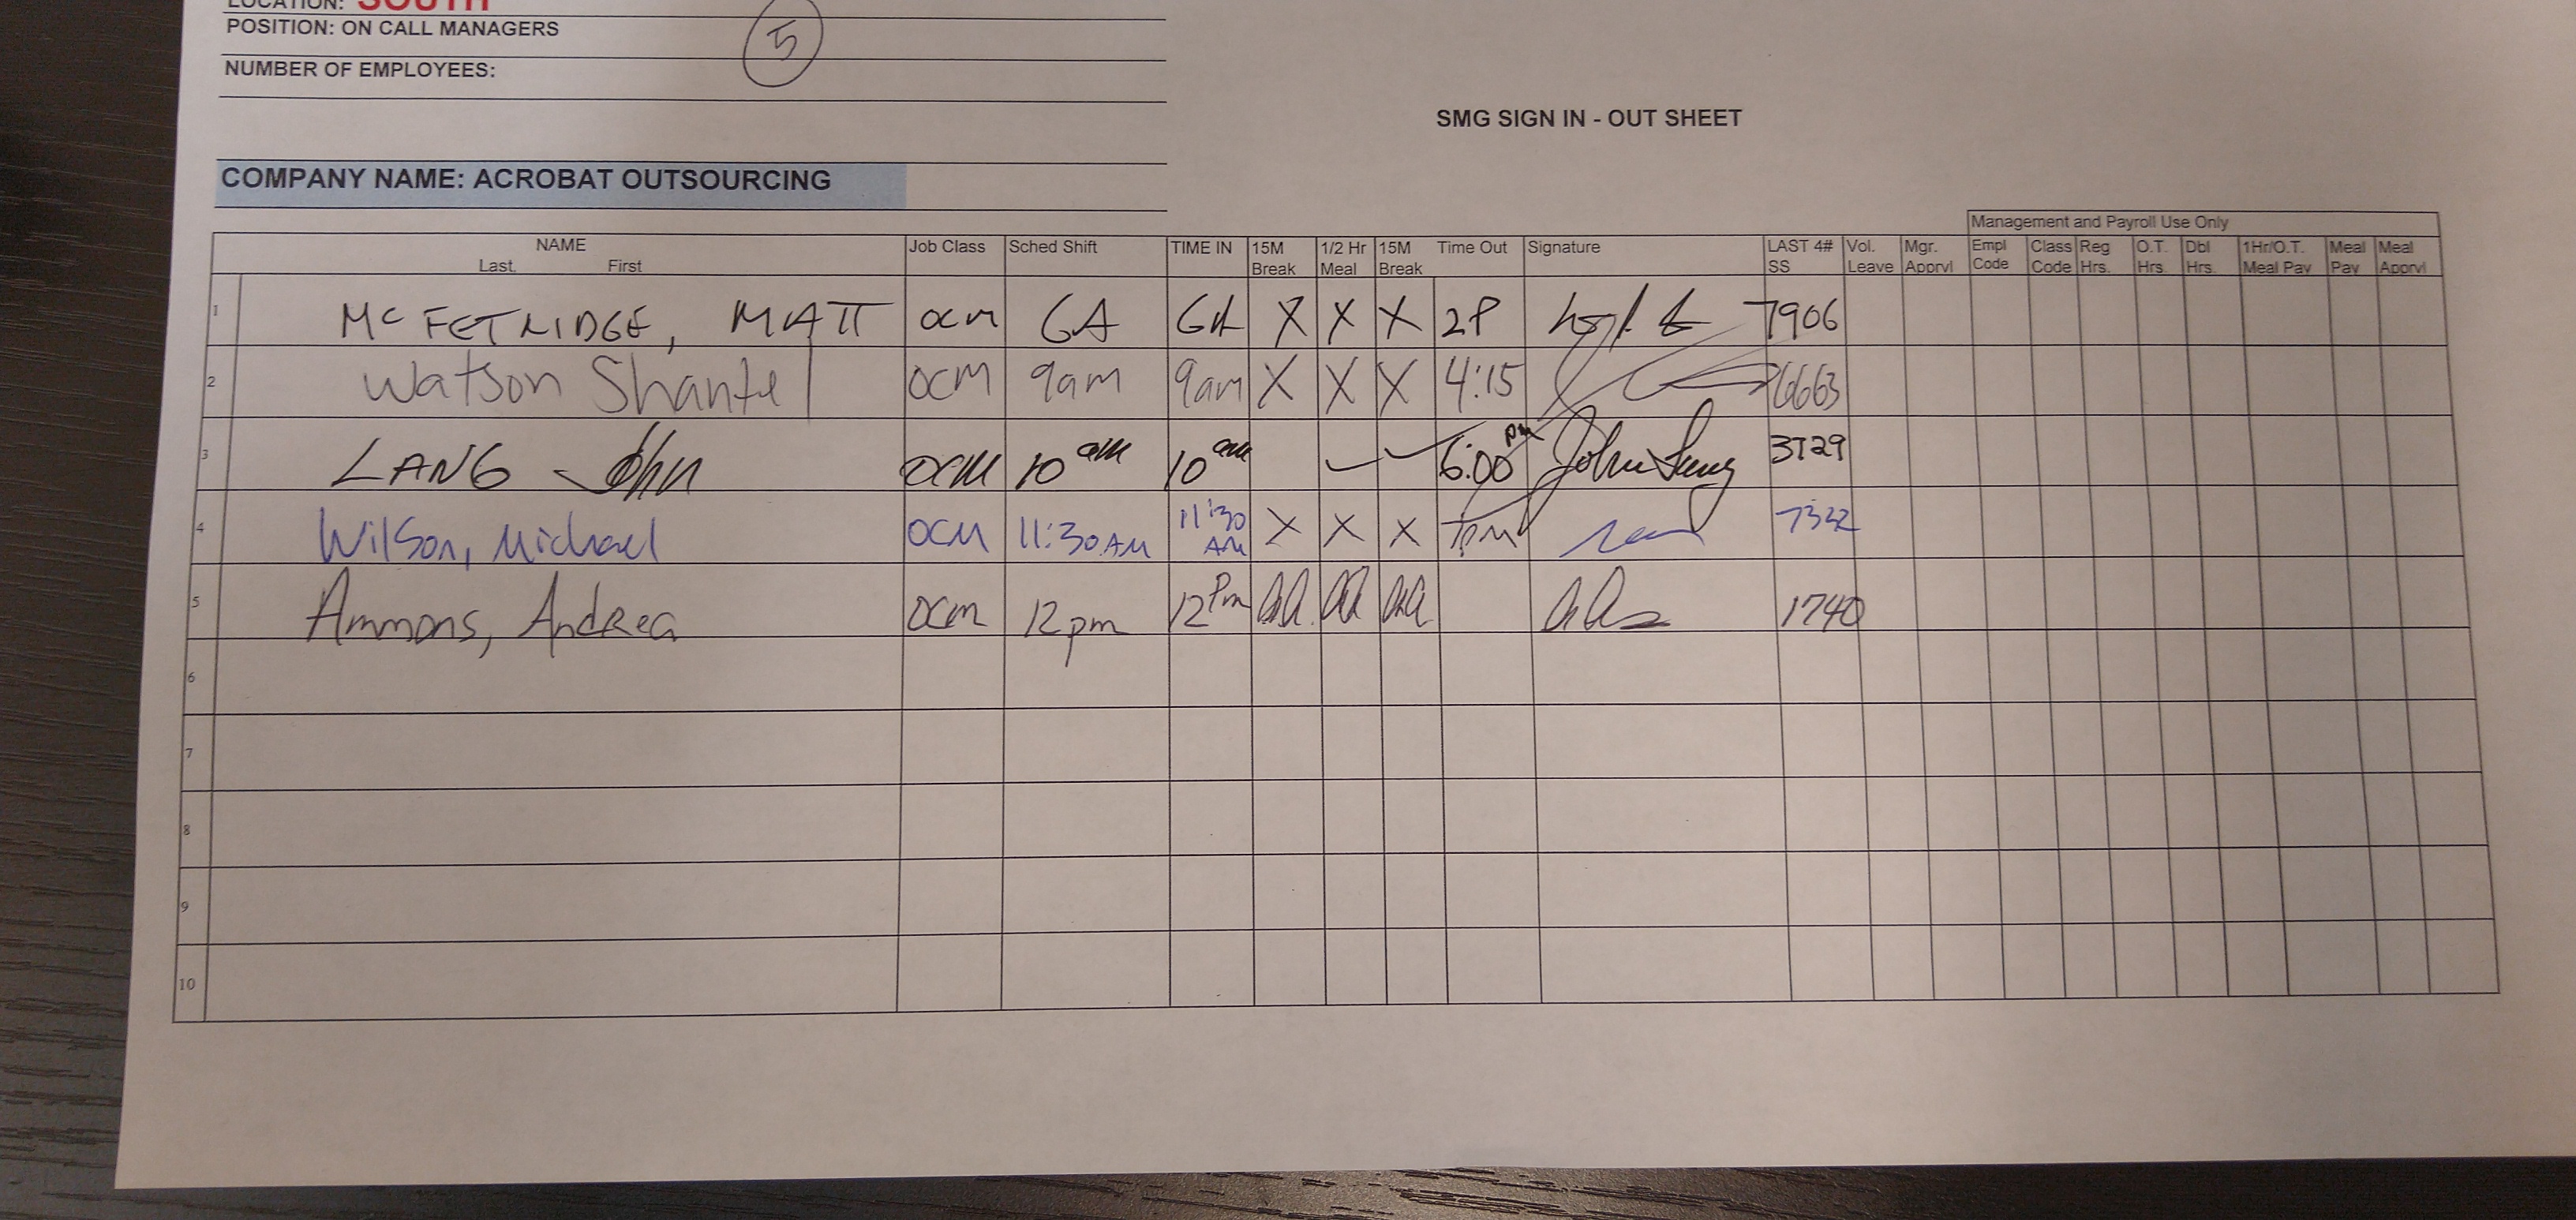 LOCATION: SOUTH
POSITION: ON CALL MANAGERS
5
NUMBER OF EMPLOYEES:
SMG SIGN IN - OUT SHEET
COMPANY NAME: ACROBAT OUTSOURCING
Management and Payroll Use Only
NAME Job Class Sched Shift TIME IN 15M 1/2 Hr 15M Time Out Signature LAST 4# Vol. Mgr. Empl Class Reg O.T. Dbl 1Hr/O.T. Meal Meal
Last, First Break Meal Break SS Leave Apprvl Code Code Hrs. Hrs. Hrs. Meal Pay Pay Apprvl
1 McFETRIDGE, MATT OCM 6A 6A X X X 2P 7906
2 Watson Shantel OCM 9am 9am X X X 4:15 6663
3 LANG John OCM 10 am 10 am ✓ ✓ 6:00 pm John Lang 3729
4 Wilson, Michael OCM 11:30 AM 11:30 AM X X X 7332
5 Ammons, Andrea OCM 12pm 12pm AA AA AA 1740
6
7
8
9
10